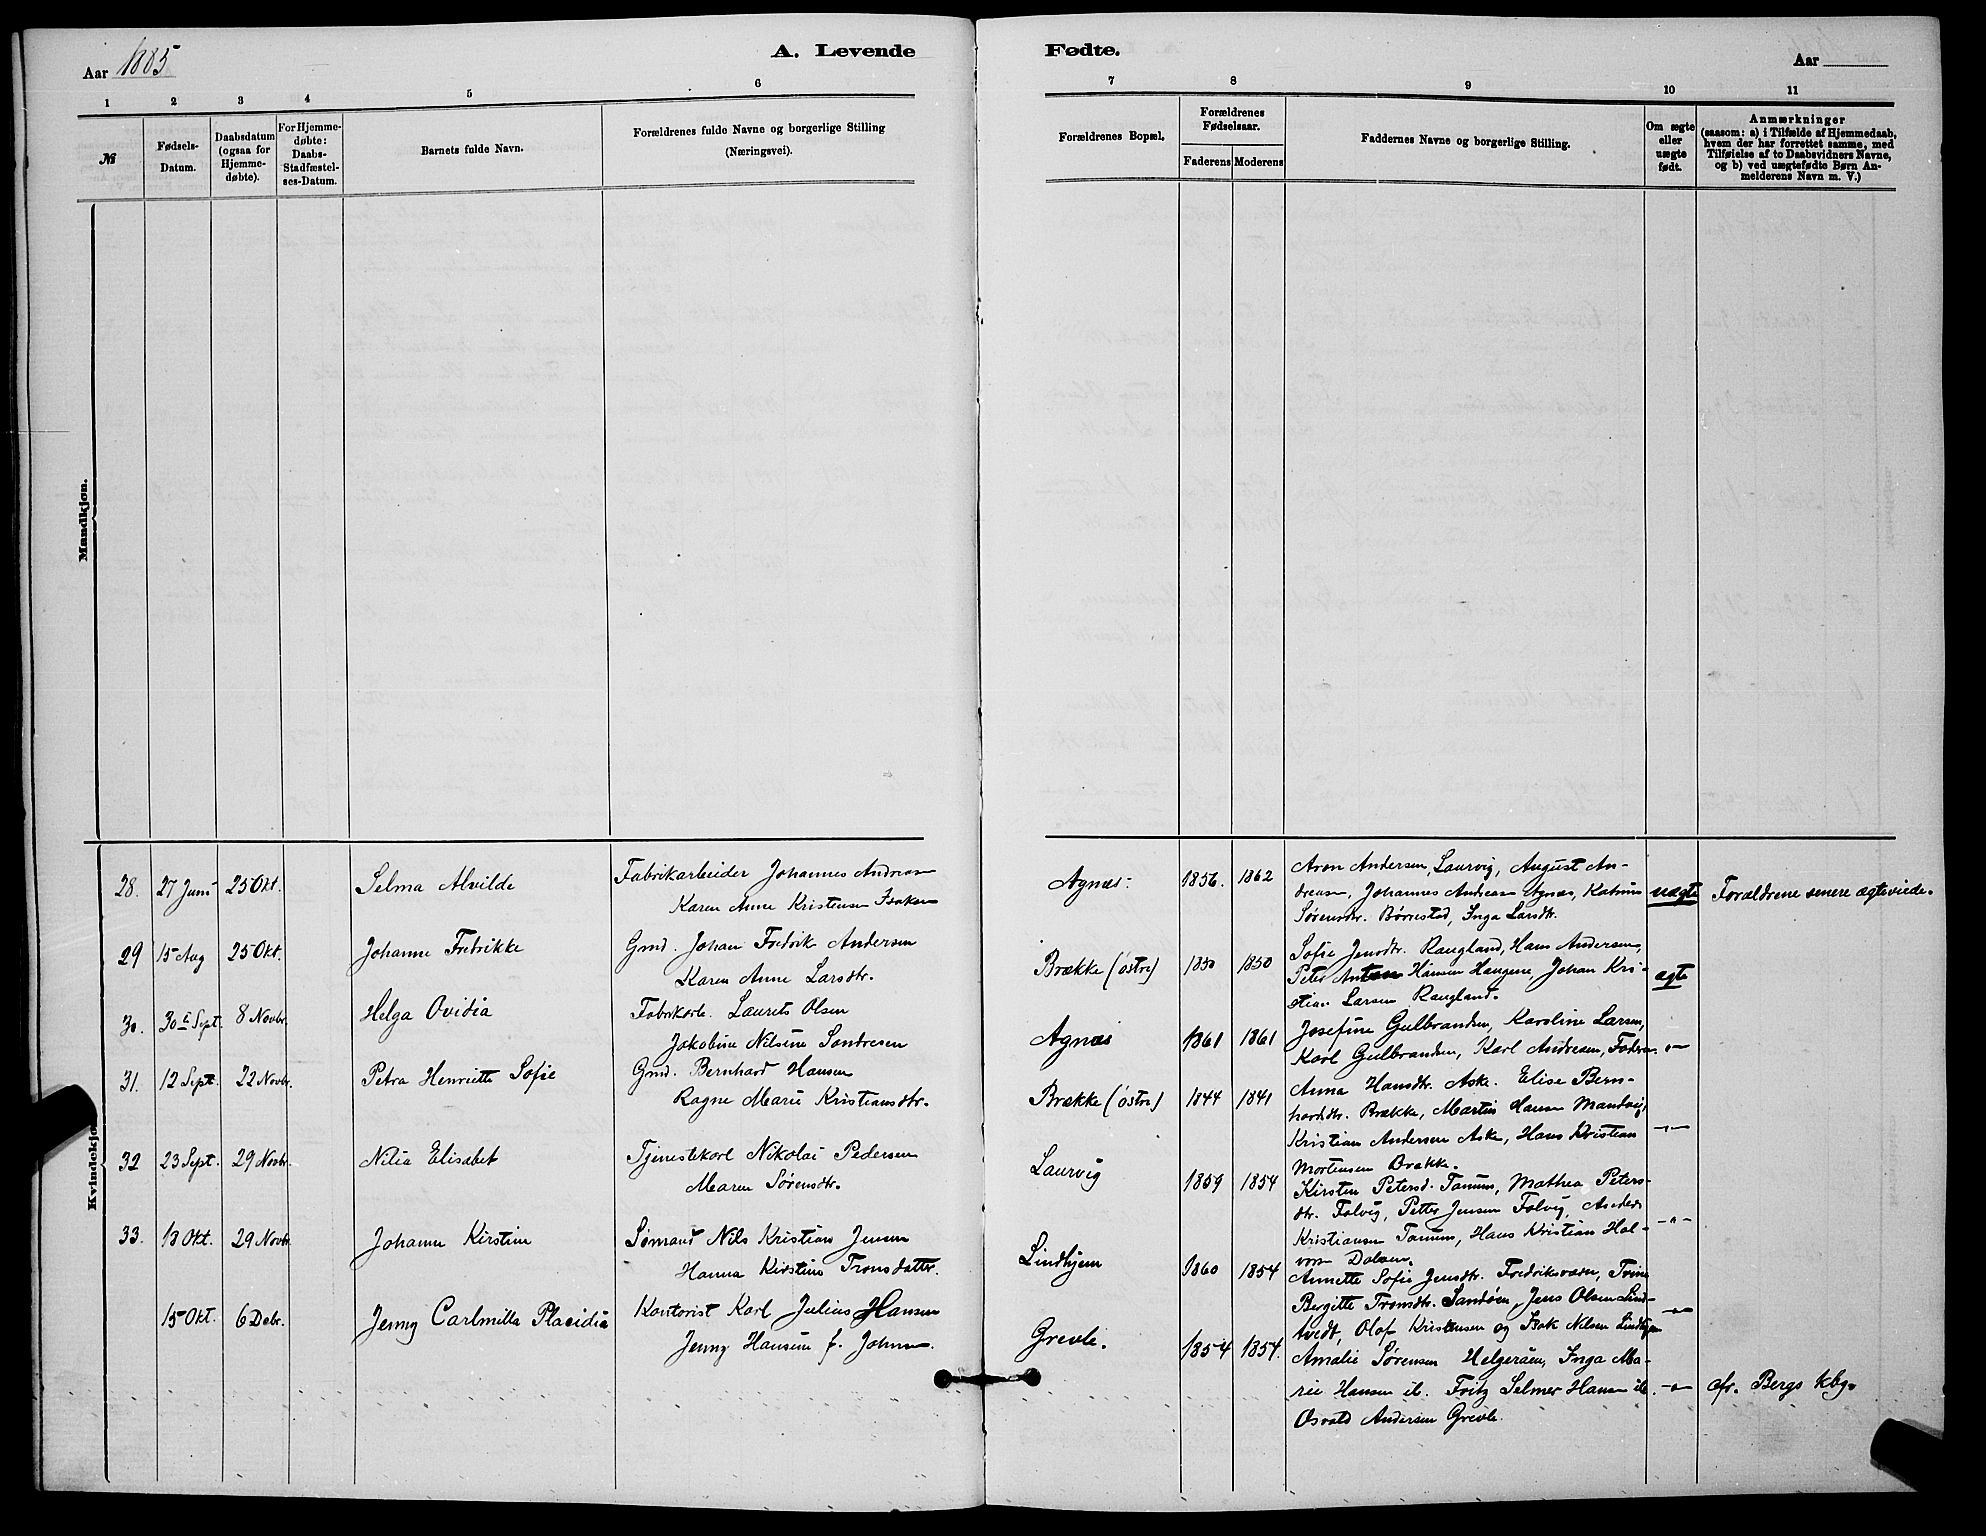 Aar 1885
A. Levende Fødte.
Aar
1 2 3 4 5 6 7 8 9 10 11
№
Fødsels-
Datum.
Daabsdatum
(ogsaa for
Hjemme-
døbte).
For Hjemme-
døbte:
Daabs-
Stadfæstel-
ses-Datum.
Barnets fulde Navn.
Forældrenes fulde Navne og borgerlige Stilling
(Næringsvei).
Forældrenes Bopæl.
Forældrenes
Fødselsaar.
Faderens Moderens
Faddernes Navne og borgerlige Stilling.
Om ægte
eller
uægte
født.
Anmærkninger
(saasom: a) i Tilfælde af Hjemmedaab,
hvem der har forrettet samme, med
Tilføielse af to Daabsvidners Navne,
og b) ved uægtefødte Børn An-
melderens Navn m. V.)
Mandkjøn.
Kvindekjøn
28. 27 Juni 25 Okt. Selma Alvilde
Fabrikarbeider Johannes Andreas
Karen Anne Kristensen
Agnæs. 1856. 1862
Aron Andersen, Laurvig, August An-
dreasen, Johannes Andreasen Agnæs, Katrine
Sørensdtr. Børrestad, Inga Larsdtr.
uægte
Forældrene senere ægteviede.
29 15 Aug 25 Okt. Johanne Fredrikke
Gmd. Johan Fredrik Andersen
Karen Anne Larsdtr.
Brække (østre) 1850 1850
Sofie Jensdtr. Raugland, Hans Andersen,
Peter Anton Hansen Haugene, Johan Kri-
stian Larsen Raugland.
ægte
30. 30te Sept. 8 Novbr. Helga Ovidia
Fabrikarb. Laurits Olsen
Jakobine Nilsine Sondresen
Agnæs 1861 1861
Josefine Gulbrandsen, Karoline Larsen,
Karl Gulbrandsen, Karl Andresen,
-"-
31. 12 Sept. 22 Novbr. Petra Henriette Sofie
Gmd. Bernhard Hansen
Ragne Marie Kristiansdtr.
Brække (østre) 1844 1841
Anna Hansdtr. Aske. Elise Bern-
hardsdtr. Brække, Martin Hansen Mandvig,
Kristian Andersen Aske, Hans Kristian
Mortensen Brække.
-"-
32 23 Sept. 29 Novbr. Nilia Elisabet
Tjenestekarl Nikolai Pedersen
Maren Sørensdtr.
Laurvig 1859 1854
Kirsten Petersd. Tanum, Mathea Peters-
dtr. Folvig, Petter Jensen Folvig, Anders
Kristiansen Tanum, Hans Kristian Hal-
vorsen
-"-
33. 13 Okt. 29 Novbr. Johanne Kirstine
Sømand Nils Kristian Jensen
Hanna Kirstine Tronsdatter.
Lindhjem 1860 1854
Annette Sofie Jensdtr. Fredriksværn, Trine
Bergitte Tronsdtr. Sandøen, Jens Olsen Lind-
tvedt, Olof Kristensen og Isak Nilsen Lindhjem
-"-
15 Okt. 6 Debr. Jenny Carlmilla Placidia
Kontorist Karl Julius Hansen
Jenny Hansen f. Johnsen.
Grevle. 1854 1854.
Amalie Sørensen Helgeråen, Inga Ma-
rie Hansen ib. Fritz Selmer Hansen ib.
Osvald Andersen Grevle.
-"-
cfr. Bergs kbg.